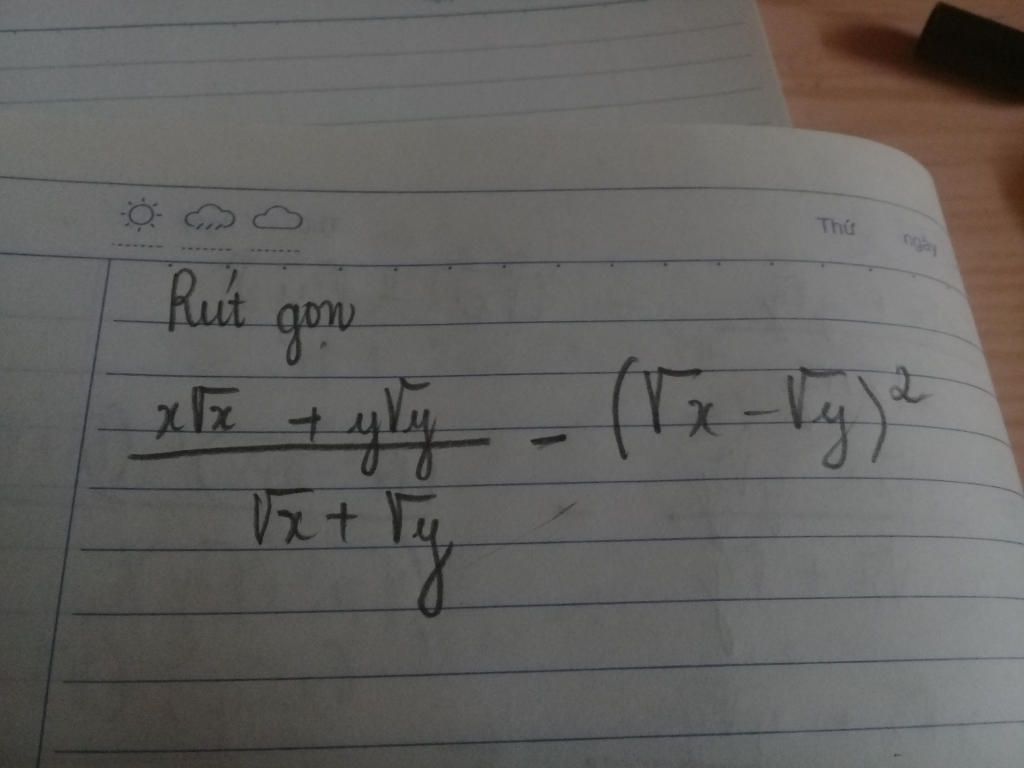 Thứ ngày
Rút gọn
x√x + y√y / √x + √y - (√x - √y)²